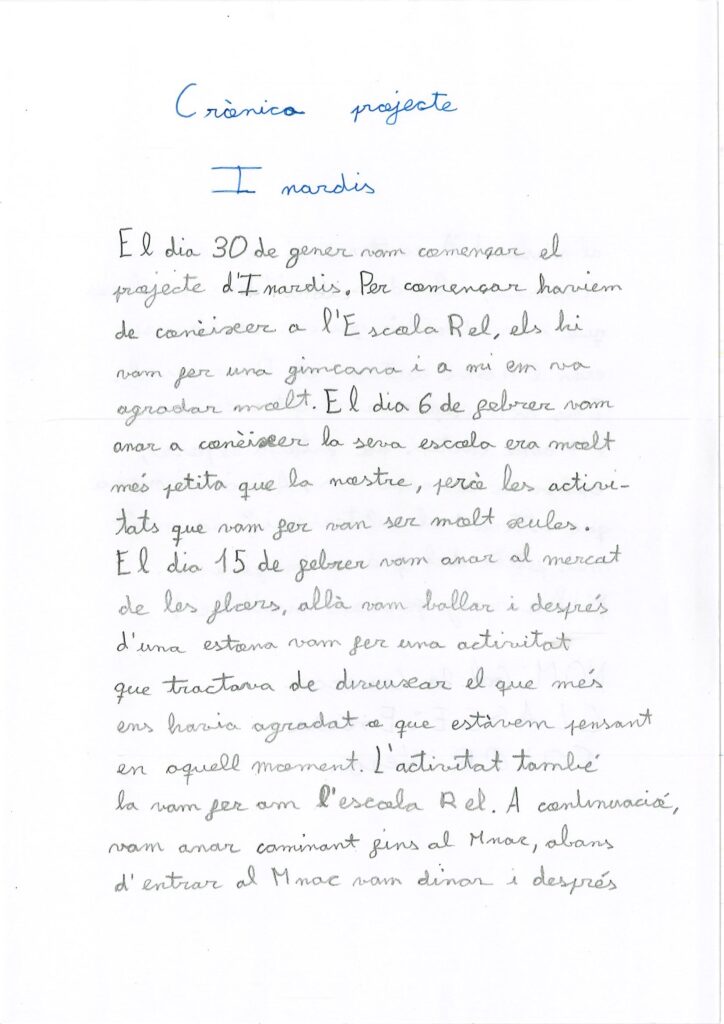 Crònica projecte
Inardis
El dia 30 de gener vam començar el
projecte d'Inardis. Per començar haviem
de conèixer a l'Escola Rel, els hi
vam fer una gimcana i a mi em va
agradar molt. El dia 6 de febrer vam
anar a conèixer la seva escola era molt
més petita que la nostre, però les activi-
tats que vam fer van ser molt xules.
El dia 15 de febrer vam anar al mercat
de les flors, allà vam ballar i després
d'una estona vam fer una activitat
que tractava de divuixar el que més
ens havia agradat o que estàvem pensant
en aquell moment. L'activitat també
la vam fer am l'escola Rel. A continuació,
vam anar caminant fins al Mnac, abans
d'entrar al Mnac vam dinar i després